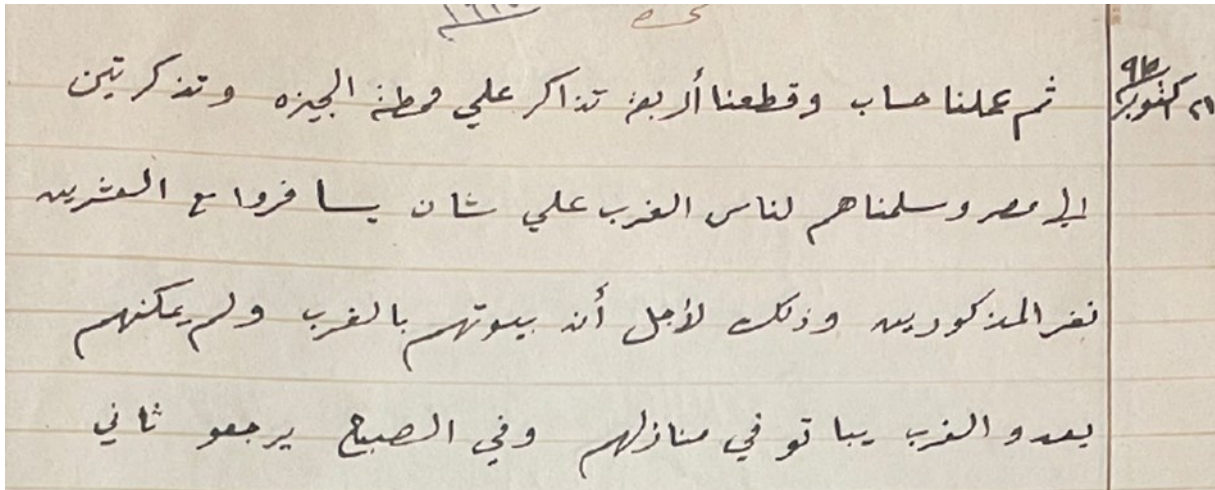 ثم عملنا حساب وقطعنا أربعة تذاكر علي محطة الجيزه وتذكرتين
الي مصر وسلمناهم لناس الغرب علي شان يسافروا مع العشرين
نفر المذكورين وذلك لأجل أن بيوتهم بالغرب ولم يمكنهم
يعدو الغرب يباتو في منازلهم وفي الصبح يرجعو ثاني
٢١ اكتوبر